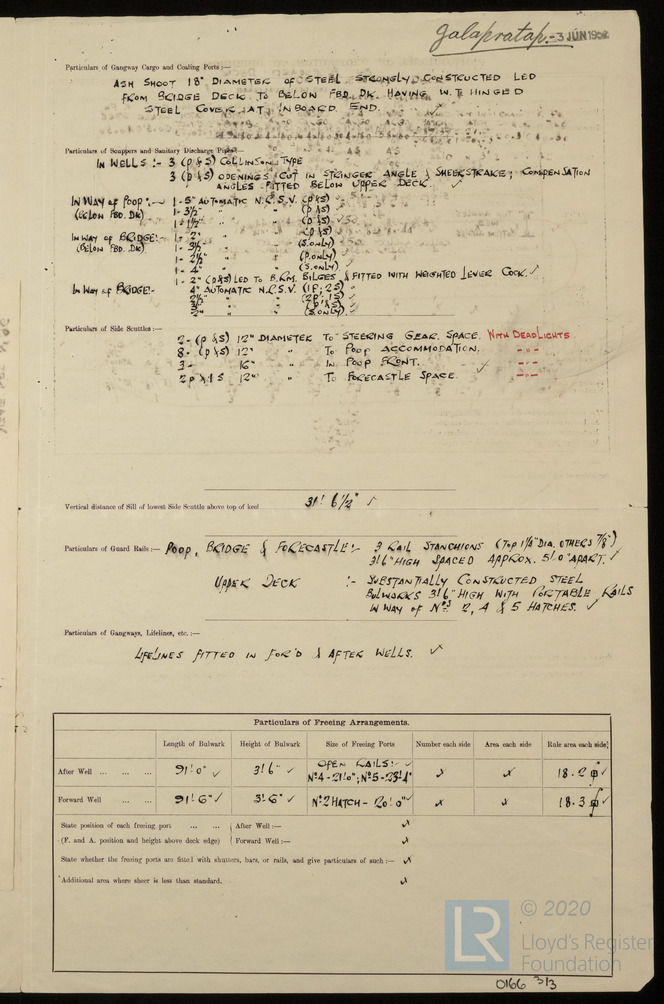 Jalapratap. -3 JUN 1952
Particulars of Gangway Cargo and Coaling Ports :—
ASH SHOOT 18" DIAMETER OF STEEL STRONGLY CONSTRUCTED LED
FROM BRIDGE DECK TO BELOW FBD. DK. HAVING W.T. HINGED
STEEL COVER AT INBOARD END.
Particulars of Scuppers and Sanitary Discharge Pipes :—
IN WELLS :- 3 (P & S) COLLINSON TYPE
3 (P & S) OPENINGS CUT IN STRINGER ANGLE & SHEERSTRAKE; COMPENSATION
ANGLES FITTED BELOW UPPER DECK. ✓
IN WAY of POOP :- 1 - 5" AUTOMATIC N.R.S.V. (P & S)
(BELOW FBD. DK) 1 - 3½" " " (P & S)
1 - 1½" " " (P & S)
IN WAY of BRIDGE :- 1 - 2" " " (P & S)
(BELOW FBD. DK) 1 - 3½" " " (S. ONLY)
1 - 2½" " " (P. ONLY)
1 - 4" " " (S. ONLY)
1 - 2" (P & S) LED TO B. RM. BILGES & FITTED WITH WEIGHTED LEVER COCK. ✓
IN WAY of BRIDGE :- 4" AUTOMATIC N.R.S.V. (1P; 2S)
2½" " " (2P; 1S)
" " (P & S)
2" " " (S. ONLY)
Particulars of Side Scuttles :—
2 - (P & S) 12" DIAMETER TO STEERING GEAR SPACE. WITH DEADLIGHTS
8 - (P & S) 12" " TO POOP ACCOMMODATION. - " -
3 - 16" " IN POOP FRONT. - " -
2 P & 1 S 12" " TO FORECASTLE SPACE. ✓ - " -
Vertical distance of Sill of lowest Side Scuttle above top of keel 31' 6½" ✓
Particulars of Guard Rails :— POOP, BRIDGE & FORECASTLE :- 3 RAIL STANCHIONS (TOP 1¼" DIA. OTHERS ⅞")
3'6" HIGH SPACED APPROX. 5'0" APART. ✓
UPPER DECK :- SUBSTANTIALLY CONSTRUCTED STEEL
BULWARKS 3'6" HIGH WITH PORTABLE RAILS
IN WAY OF Nos 2, 4 & 5 HATCHES. ✓
Particulars of Gangways, Lifelines, etc. :—
LIFELINES FITTED IN FOR'D & AFTER WELLS. ✓
Particulars of Freeing Arrangements.
Length of Bulwark Height of Bulwark Size of Freeing Ports Number each side Area each side Rule area each side
After Well ... ... ... 91'.0" ✓ 3'6" ✓ OPEN RAILS :- Nº4 - 21'0"; Nº5 - 23'4" ✓ ✓ 18.2 ✓
Forward Well ... ... 91'6" ✓ 3'.6" ✓ Nº2 HATCH - 20'0" ✓ ✓ ✓ 18.3 ✓
State position of each freeing port ... ... After Well :— ✓
(F. and A. position and height above deck edge) Forward Well :— ✓
State whether the freeing ports are fitted with shutters, bars, or rails, and give particulars of such :— ✓
Additional area where sheer is less than standard. ✓
LR © 2020
Lloyd's Register
Foundation
0166 3/3